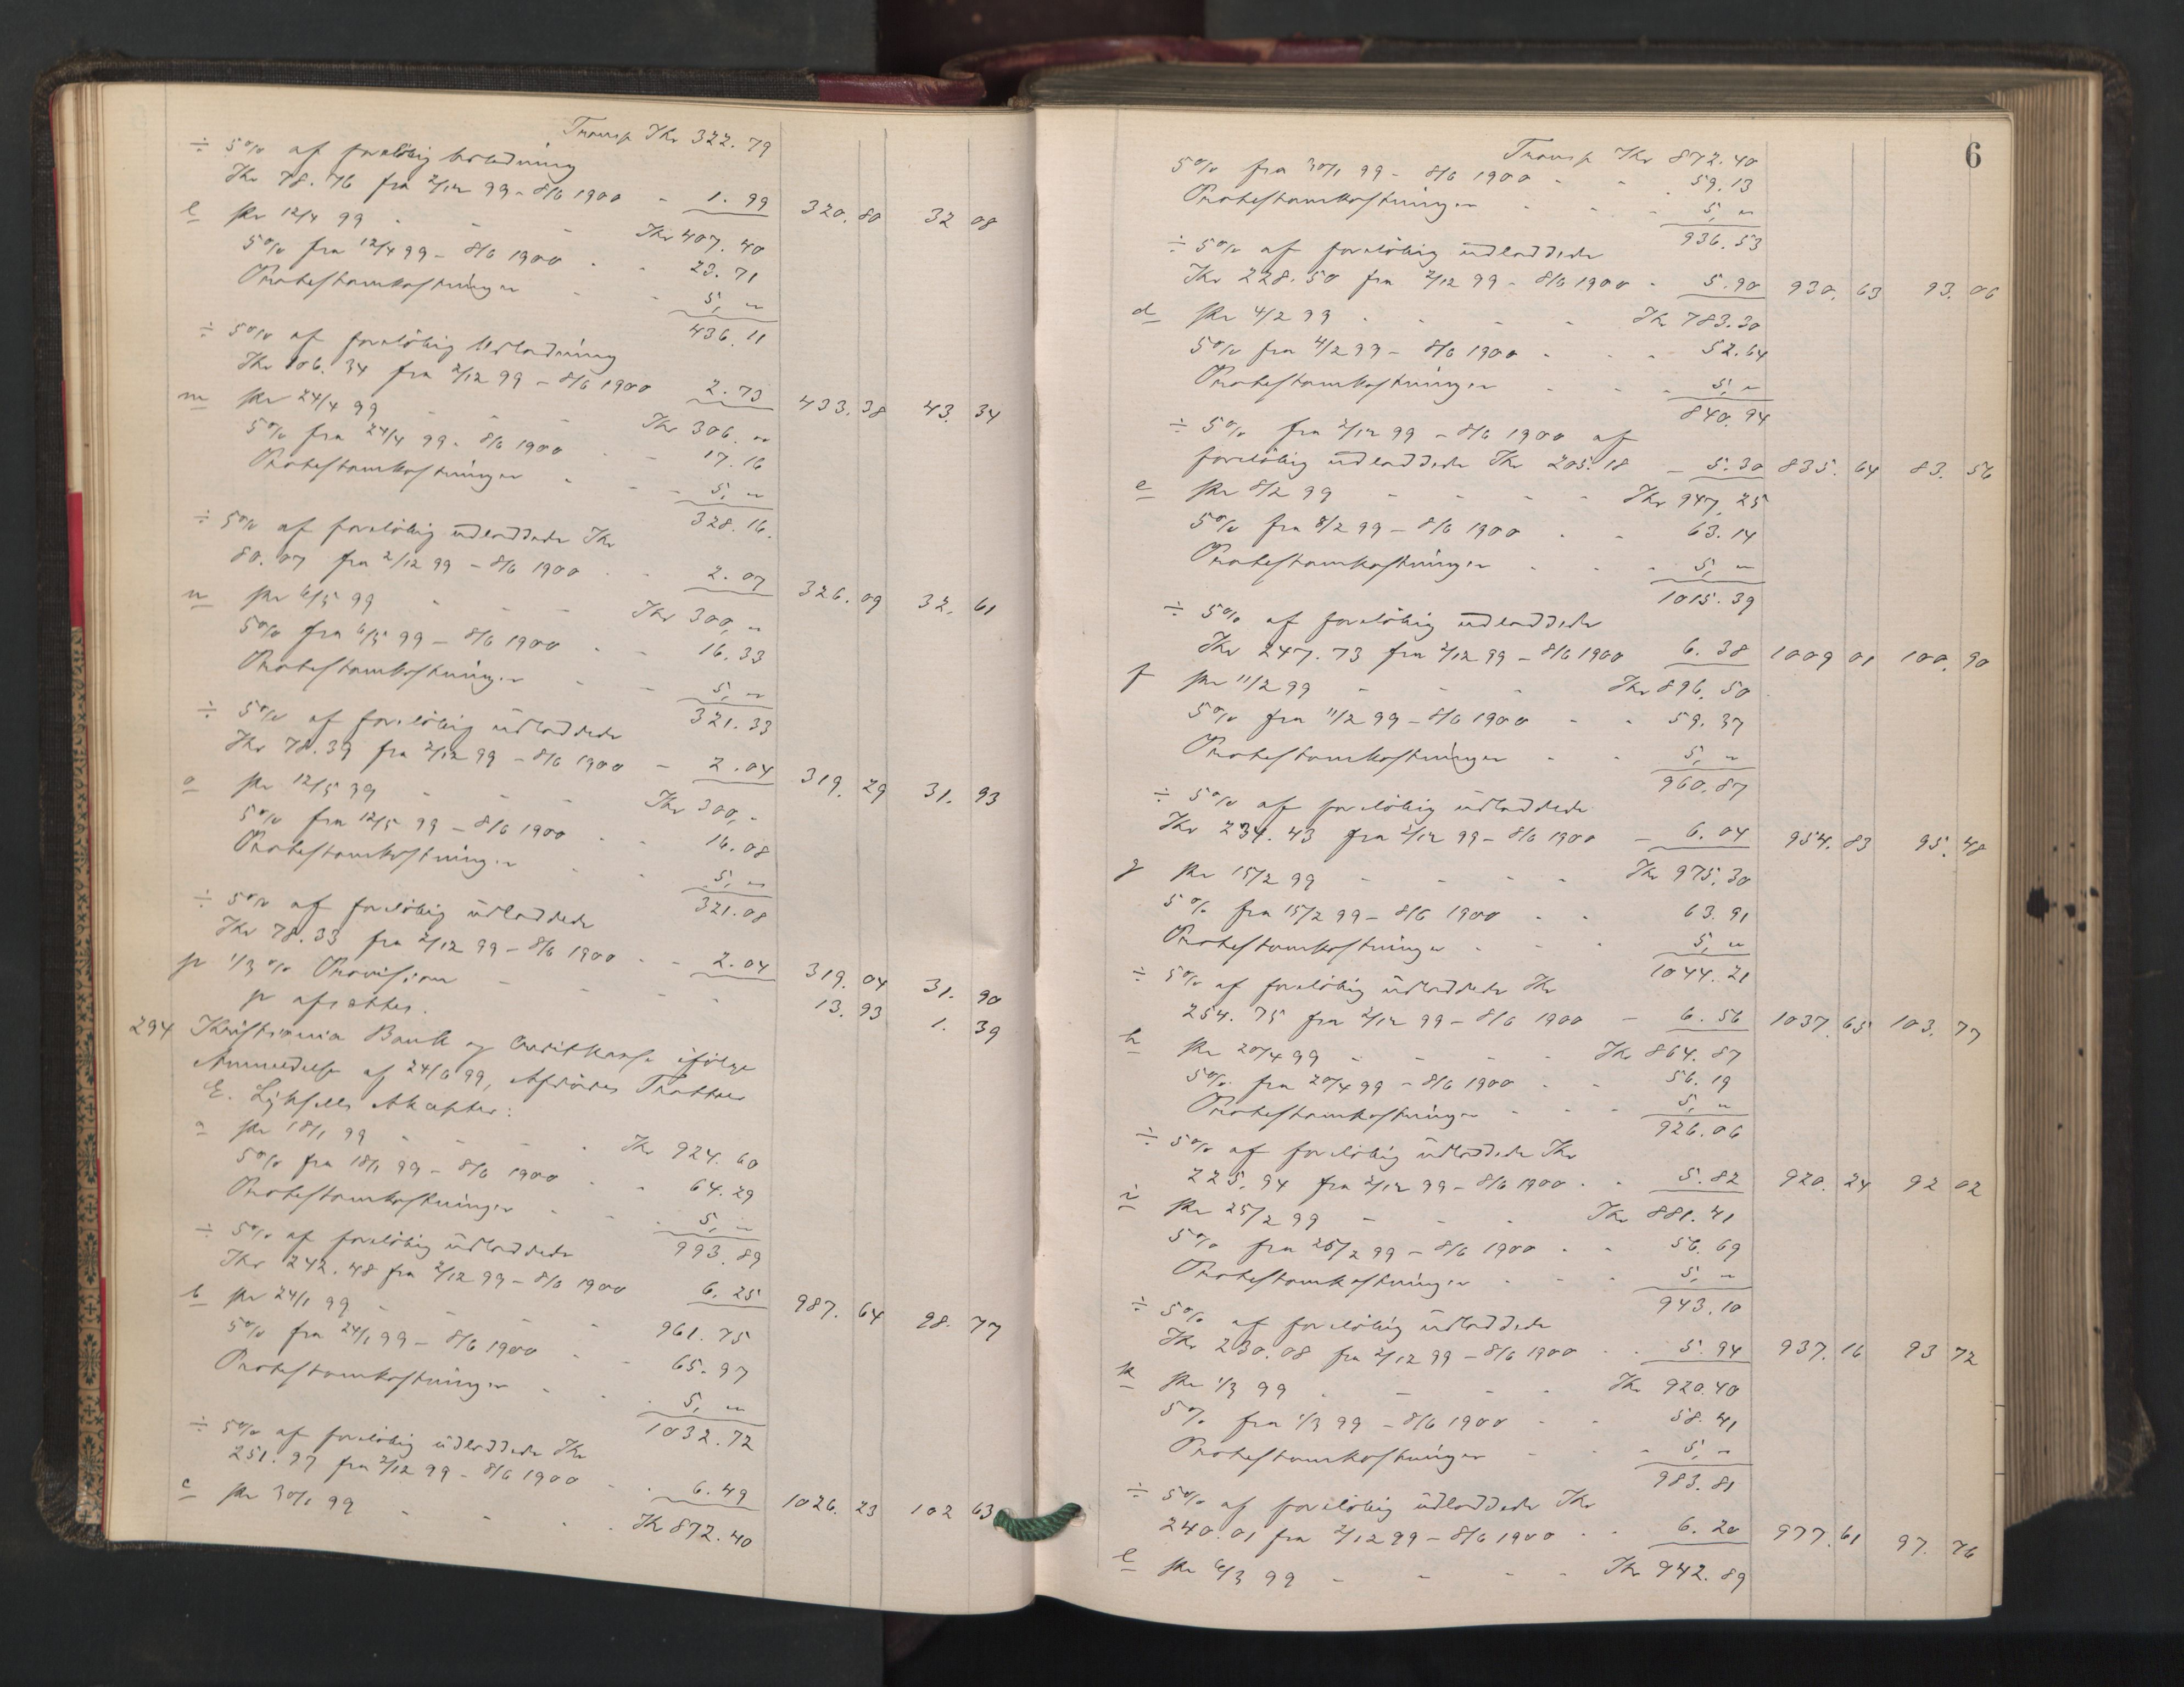 Transp Kr 322. 79
÷ 5% af foreløbig Udlodning
Kr 78. 76 fra 2/12 99 - 8/6 1900 - 1. 99 320. 80 32 08
l pr 12/4 99 - - - Kr 407. 40
5% fra 12/4 99 - 8/6 1900 - - 23. 71
Protestomkostninger - - 5, "
436. 11
÷ 5% af foreløbig Udlodning
Kr 106. 34 fra 2/12 99 - 8/6 1900 2. 73 433. 38 43. 34
m pr 24/4 99 - - - Kr 306. "
5% fra 24/4 99 - 8/6 1900 - - 17. 16
Protestomkostninger - - - 5, "
328. 16.
÷ 5% af foreløbig udloddede Kr
80. 07 fra 2/12 99 - 8/6 1900 - - 2. 07 326. 09 32. 61
n pr 6/5 99 - - - Kr 300, "
5% fra 6/5 99 - 8/6 1900 - - 16. 33
Protestomkostninger - - 5, "
321. 33
÷ 5% af foreløbig udloddede
Kr 78. 39 fra 2/12 99 - 8/6 1900 - 2. 04 319. 29 31. 93
o pr 12/5 99 - - - Kr 300, -
5% fra 12/5 99 - 8/6 1900 - - 16. 08
Protestomkostninger - - 5, "
321. 08
÷ 5% af foreløbig udloddede
Kr 78. 33 fra 2/12 99 - 8/6 1900 - - 2. 04 319. 04 31. 90
p 1/3 % Provision - - - - 13. 93 1. 39
p afsættes.
294 Kristiania Bank og Creditkasse ifølge
Anmeldelse af 24/6 99, Tratter
E. Accepter:
a pr 18/1 99 - - - - Kr 924. 60
5% fra 18/1 99 - 8/6 1900 - - 64. 29
Protestomkostninger - - - 5, "
993. 89
÷ 5% af foreløbig udloddede
Kr 242. 48 fra 2/12 99 - 8/6 1900 6. 25 987. 64 98. 77
b pr 24/1 99 - - - - 961. 75
5% fra 24/1 99 - 8/6 1900 - - 65. 97
Protestomkostninger - - - 5, "
1032. 72
÷ 5% af foreløbig udloddede Kr
251. 97 fra 2/12 99 - 8/6 1900 - - 6. 49 1026. 23 102 63
c pr 30/1 99 - - - - Kr 872. 40
6
Transp Kr 872. 40
5% fra 30/1 99 - 8/6 1900 - - - 59. 13
Protestomkostninger - - - 5, "
936. 53
÷ 5% af foreløbig udloddede
Kr 228. 50 fra 2/12 99 - 8/6 1900 - 5. 90 930. 63 93. 06
d pr 4/2 99 - - - - Kr 783. 30
5% fra 4/2 99 - 8/6 1900 - - - 52. 64
Protestomkostninger - - - 5, "
840. 94
÷ 5% fra 2/12 99 - 8/6 1900 af
foreløbig udloddede Kr 205. 18 - 5. 30 835. 64 83. 56
e pr 8/2 99 - - - - Kr 947. 25
5% fra 8/2 99 - 8/6 1900 - - 63. 14
Protestomkostninger - - - 5, "
1015. 39
÷ 5% af foreløbig udloddede
Kr 247. 73 fra 2/12 99 - 8/6 1900 6. 38 1009 01 100. 90
f pr 11/2 99 - - - Kr 896. 50
5% fra 11/2 99 - 8/6 1900 - - 59. 37
Protestomkostninger - - 5, "
960. 87
÷ 5% af foreløbig udloddede
Kr 234. 43 fra 2/12 99 - 8/6 1900 - 6. 04 954. 83 95. 48
g pr 15/2 99 - - - - Kr 975. 30
5% fra 15/2 99 - 8/6 1900 - - 63. 91
Protestomkostninger - - - 5, "
1044. 21
÷ 5% af foreløbig udloddede Kr
254. 75 fra 2/12 99 - 8/6 1900 - 6. 56 1037. 65 103. 77
h pr 20/4 99 - - - - Kr 864. 87
5% fra 20/4 99 - 8/6 1900 - - 56. 19
Protestomkostninger - - - 5, "
926. 06
÷ 5% af foreløbig udloddede Kr
225. 94 fra 2/12 99 - 8/6 1900 - - 5. 82 920. 24 92 02
i pr 25/2 99 - - - Kr 881. 41
5% fra 25/2 99 - 8/6 1900 - - 56. 69
Protestomkostninger - - - 5, "
943. 10
÷ 5% af foreløbig udloddede
Kr 230. 08 fra 2/12 99 - 8/6 1900 - - 5. 94 937. 16 93 72
k pr 1/3 99 - - - - Kr 920. 40
5% fra 1/3 99 - 8/6 1900 - - 58. 41
Protestomkostninger - - - 5, "
983. 81
÷ 5% af foreløbig udloddede Kr
240. 01 fra 2/12 99 - 8/6 1900 - - 6. 20 977. 61 97. 76
l pr 6/3 99 - - - - Kr 942. 89